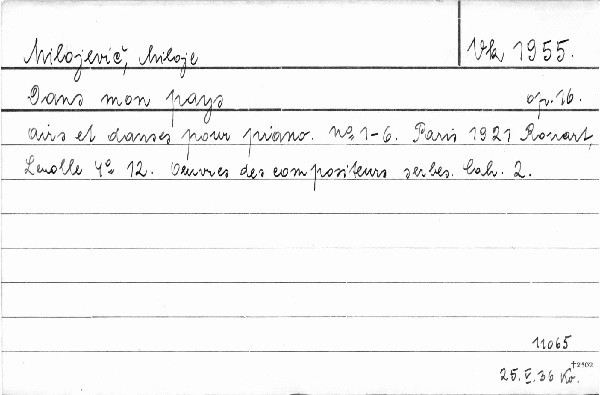 Milojević, Miloje
Vk 1955.
Dans mon pays op. 16.
airs et danses pour piano. No 1-6. Paris 1921 Rouart,
Lerolle 4º 12. Oeuvres des compositeurs serbes. Cah. 2.
11065
25. V. 36 Kr.